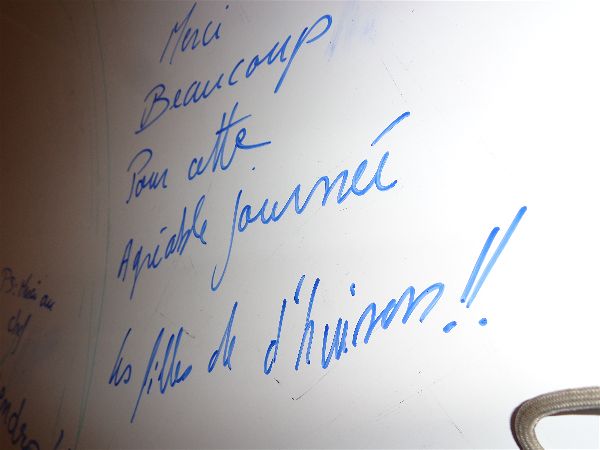 Merci
Beaucoup
Pour cette
Agréable journée
les filles de d'huison!!
PS: Merci au
chef